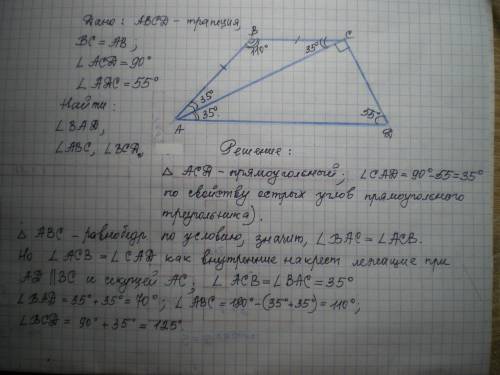 Дано: ABCD - трапеция,
BC = AB;
∠ACD = 90°
∠ADC = 55°
Найти:
∠BAD,
∠ABC, ∠BCD.
B
C
110°
35°
35°
35°
55°
A
D
Решение:
△ ACD - прямоугольный; ∠CAD = 90° - 55 = 35°
по свойству острых углов прямоугольного
треугольника).
△ ABC - равнобедр. по условию, значит, ∠BAC = ∠ACB.
Но ∠ACB = ∠CAD как внутренние накрест лежащие при
AD ∥ BC и секущей AC; ∠ACB = ∠BAC = 35°
∠BAD = 35° + 35° = 70°; ∠ABC = 180° - (35° + 35°) = 110°;
∠BCD = 90° + 35° = 125°.